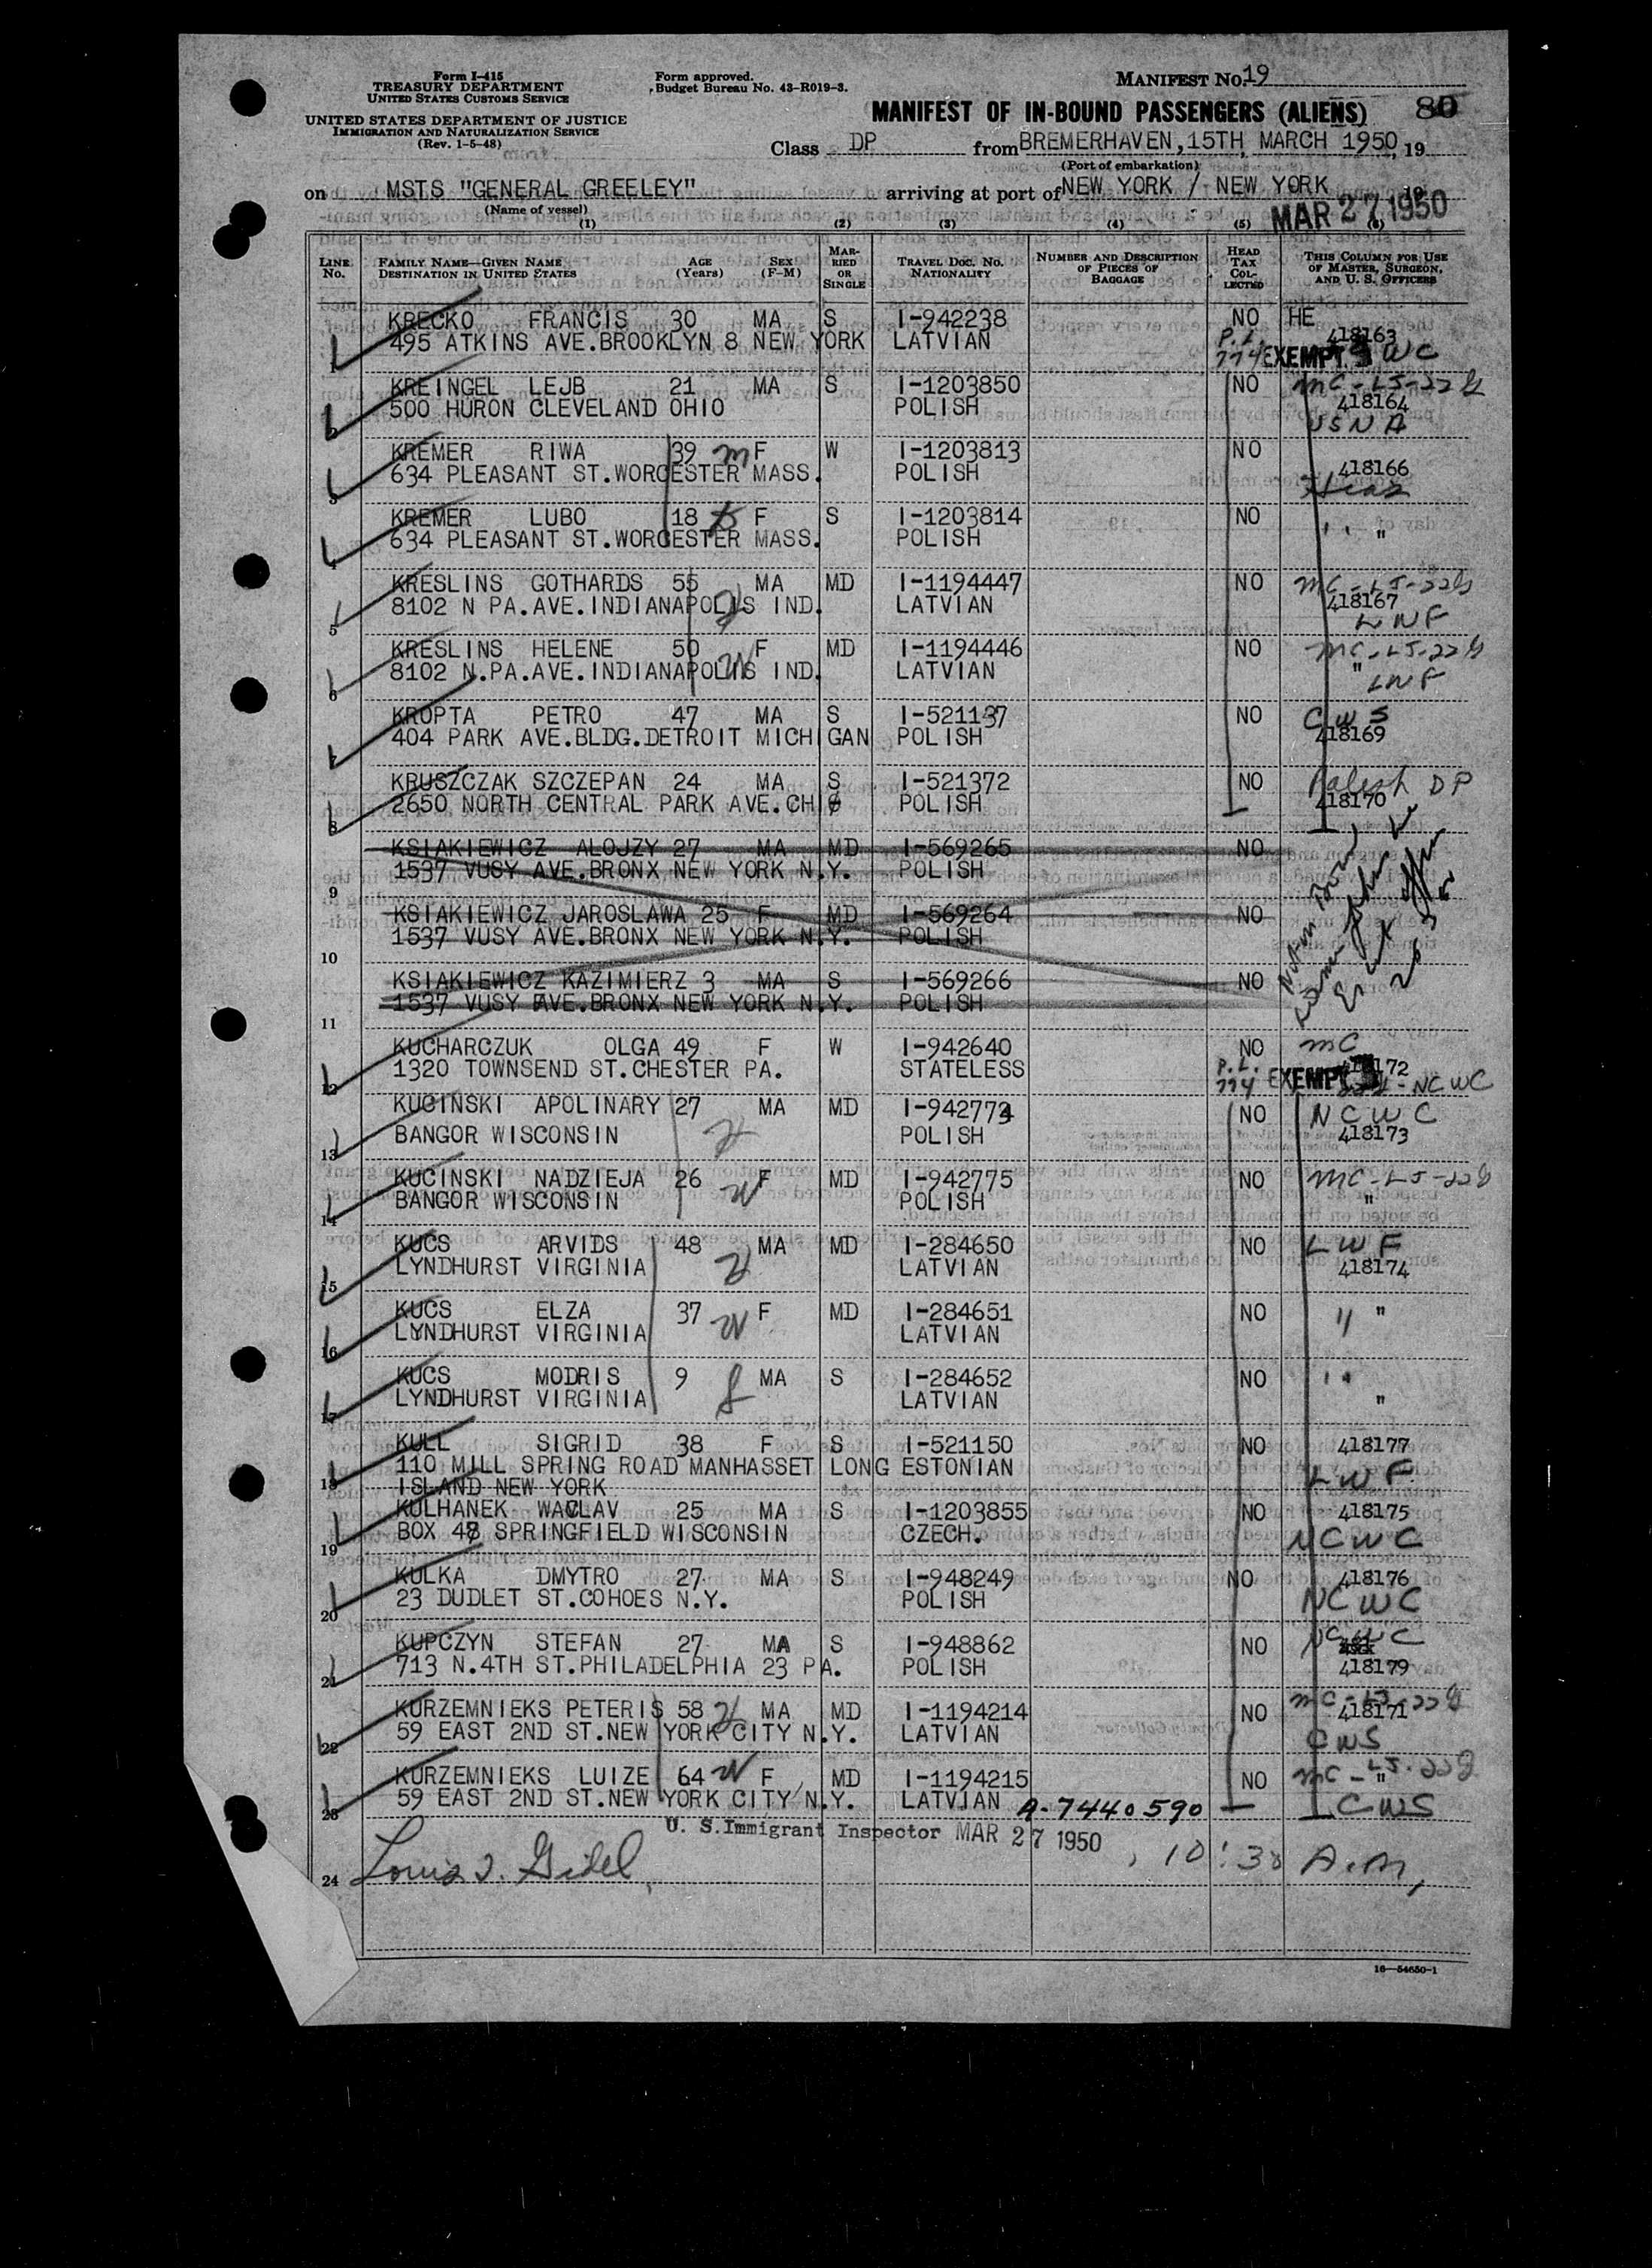 Form I-415
TREASURY DEPARTMENT
UNITED STATES CUSTOMS SERVICE
UNITED STATES DEPARTMENT OF JUSTICE
IMMIGRATION AND NATURALIZATION SERVICE
(Rev. 1-5-48)
Form approved.
Budget Bureau No. 43-R019-3.
MANIFEST No. 19
MANIFEST OF IN-BOUND PASSENGERS (ALIENS) 80
Class DP from BREMERHAVEN, 15TH, MARCH 1950, 19
(Port of embarkation)
on MSTS "GENERAL GREELEY" arriving at port of NEW YORK / NEW YORK 19
(Name of vessel) MAR 27 1950
(1) (2) (3) (4) (5) (6)
LINE No. FAMILY NAME—GIVEN NAME DESTINATION IN UNITED STATES AGE (Years) SEX (F-M) MARRIED OR SINGLE TRAVEL DOC. NO. NATIONALITY NUMBER AND DESCRIPTION OF PIECES OF BAGGAGE HEAD TAX COLLECTED THIS COLUMN FOR USE OF MASTER, SURGEON, AND U. S. OFFICERS
KRECKO FRANCIS 30 MA S I-942238 NO HE
1 495 ATKINS AVE.BROOKLYN 8 NEW YORK LATVIAN P.L. 774 EXEMPT 3 418163 WC
KREINGEL LEJB 21 MA S I-1203850 NO MC-LJ-22
2 500 HURON CLEVELAND OHIO POLISH 418164 USNA
KREMER RIWA 39 m F W I-1203813 NO
3 634 PLEASANT ST.WORCESTER MASS. POLISH 418166 Hias
KREMER LUBO 18 F S I-1203814 NO
4 634 PLEASANT ST.WORCESTER MASS. POLISH " "
KRESLINS GOTHARDS 55 MA MD I-1194447 NO MC-LJ-22
5 8102 N PA.AVE.INDIANAPOLIS IND. LATVIAN 418167 LWF
KRESLINS HELENE 50 W F MD I-1194446 NO MC-LJ-22
6 8102 N.PA.AVE.INDIANAPOLIS IND. LATVIAN " LWF
KROPTA PETRO 47 MA S I-521137 NO CWS
7 404 PARK AVE.BLDG.DETROIT MICHIGAN POLISH 418169
KRUSZCZAK SZCZEPAN 24 MA S I-521372 NO Polish DP
8 2650 NORTH CENTRAL PARK AVE.CHI POLISH 418170
KSIAKIEWICZ ALOJZY 27 MA MD I-569265 NO
9 1537 VUSY AVE.BRONX NEW YORK N.Y. POLISH
KSIAKIEWICZ JAROSLAWA 25 F MD I-569264 NO
10 1537 VUSY AVE.BRONX NEW YORK N.Y. POLISH
KSIAKIEWICZ KAZIMIERZ 3 MA S I-569266 NO
11 1537 VUSY AVE.BRONX NEW YORK N.Y. POLISH
KUCHARCZUK OLGA 49 F W I-942640 NO MC
12 1320 TOWNSEND ST.CHESTER PA. STATELESS P.L. 774 EXEMPT 3 418172 NCWC
KUCINSKI APOLINARY 27 MA MD I-942774 NO NCWC
13 BANGOR WISCONSIN POLISH 418173
KUCINSKI NADZIEJA 26 W F MD I-942775 NO MC-LJ-22
14 BANGOR WISCONSIN POLISH "
KUCS ARVIDS 48 MA MD I-284650 NO LWF
15 LYNDHURST VIRGINIA LATVIAN 418174
KUCS ELZA 37 W F MD I-284651 NO " "
16 LYNDHURST VIRGINIA LATVIAN
KUCS MODRIS 9 MA S I-284652 NO "
17 LYNDHURST VIRGINIA LATVIAN "
KULL SIGRID 38 F S I-521150 NO 418177
18 110 MILL SPRING ROAD MANHASSET LONG ESTONIAN LWF
ISLAND NEW YORK
KULHANEK WACLAV 25 MA S I-1203855 NO 418175
19 BOX 48 SPRINGFIELD WISCONSIN CZECH. NCWC
KULKA DMYTRO 27 MA S I-948249 NO 418176
20 23 DUDLET ST.COHOES N.Y. POLISH NCWC
KUPCZYN STEFAN 27 MA S I-948862 NO NCWC
21 713 N.4TH ST.PHILADELPHIA 23 PA. POLISH 418179
KURZEMNIEKS PETERIS 58 MA MD I-1194214 NO MC-LJ-22
22 59 EAST 2ND ST.NEW YORK CITY N.Y. LATVIAN 418171 CWS
KURZEMNIEKS LUIZE 64 W F MD I-1194215 NO MC-LJ-22
23 59 EAST 2ND ST.NEW YORK CITY N.Y. LATVIAN A-7440590 " CWS
U. S. Immigrant Inspector MAR 27 1950, 10:30 A.M,
24
16—54650-1